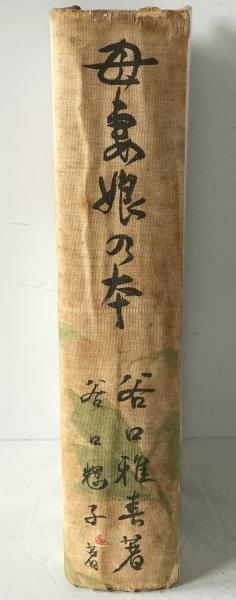 母妻娘の本
谷口雅春著
谷口輝子著